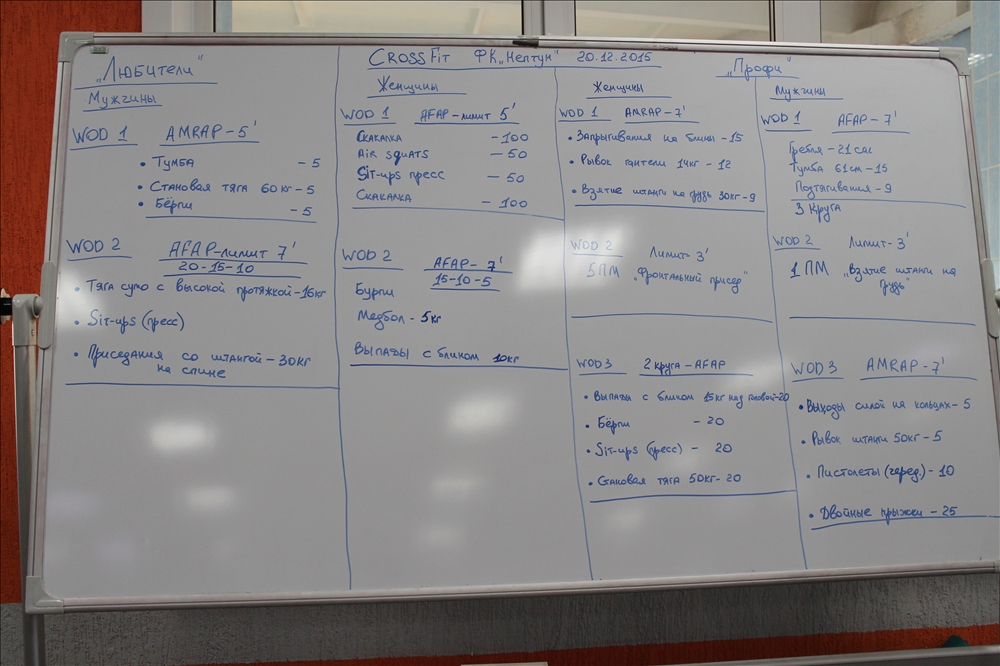 CROSSFIT ФК „Нептун" 20.12.2015
„Любители"
Мужчины
WOD 1 AMRAP-5'
• Тумба - 5
• Становая тяга 60кг-5
• Бёрпи - 5
WOD 2 AFAP-лимит 7'
20-15-10
• Тяга сумо с высокой протяжкой-16кг
• Sit-ups (пресс)
• Приседания со штангой-30кг
на спине
Женщины
WOD 1 AFAP-лимит 5'
Скакалка -100
Air squats - 50
Sit-ups пресс - 50
Скакалка - 100
WOD 2 AFAP- 7'
15-10-5
Бурпи
Медбол - 5кг
Выпады с блином 10кг
„Профи"
Женщины
WOD 1 AMRAP-7'
• Запрыгивания на блины - 15
• Рывок гантели 14кг - 12
• Взятие штанги на грудь 30кг-9
WOD 2 Лимит- 3'
5ПМ „Фронтальный присед"
WOD3 2 круга-AFAP
• Выпады с блином 15кг над головой-20
• Бёрпи - 20
• Sit-ups (пресс) - 20
• Становая тяга 50кг- 20
Мужчины
WOD 1 AFAP-7'
Гребля - 21 cal
Тумба 61см-15
Подтягивания - 9
3 Круга
WOD 2 Лимит- 3'
1 ПМ „Взятие штанги на
грудь"
WOD 3 AMRAP-7'
• Выходы силой на кольцах- 5
• Рывок штанги 50кг-5
• Пистолеты (черед.) - 10
• Двойные прыжки - 25